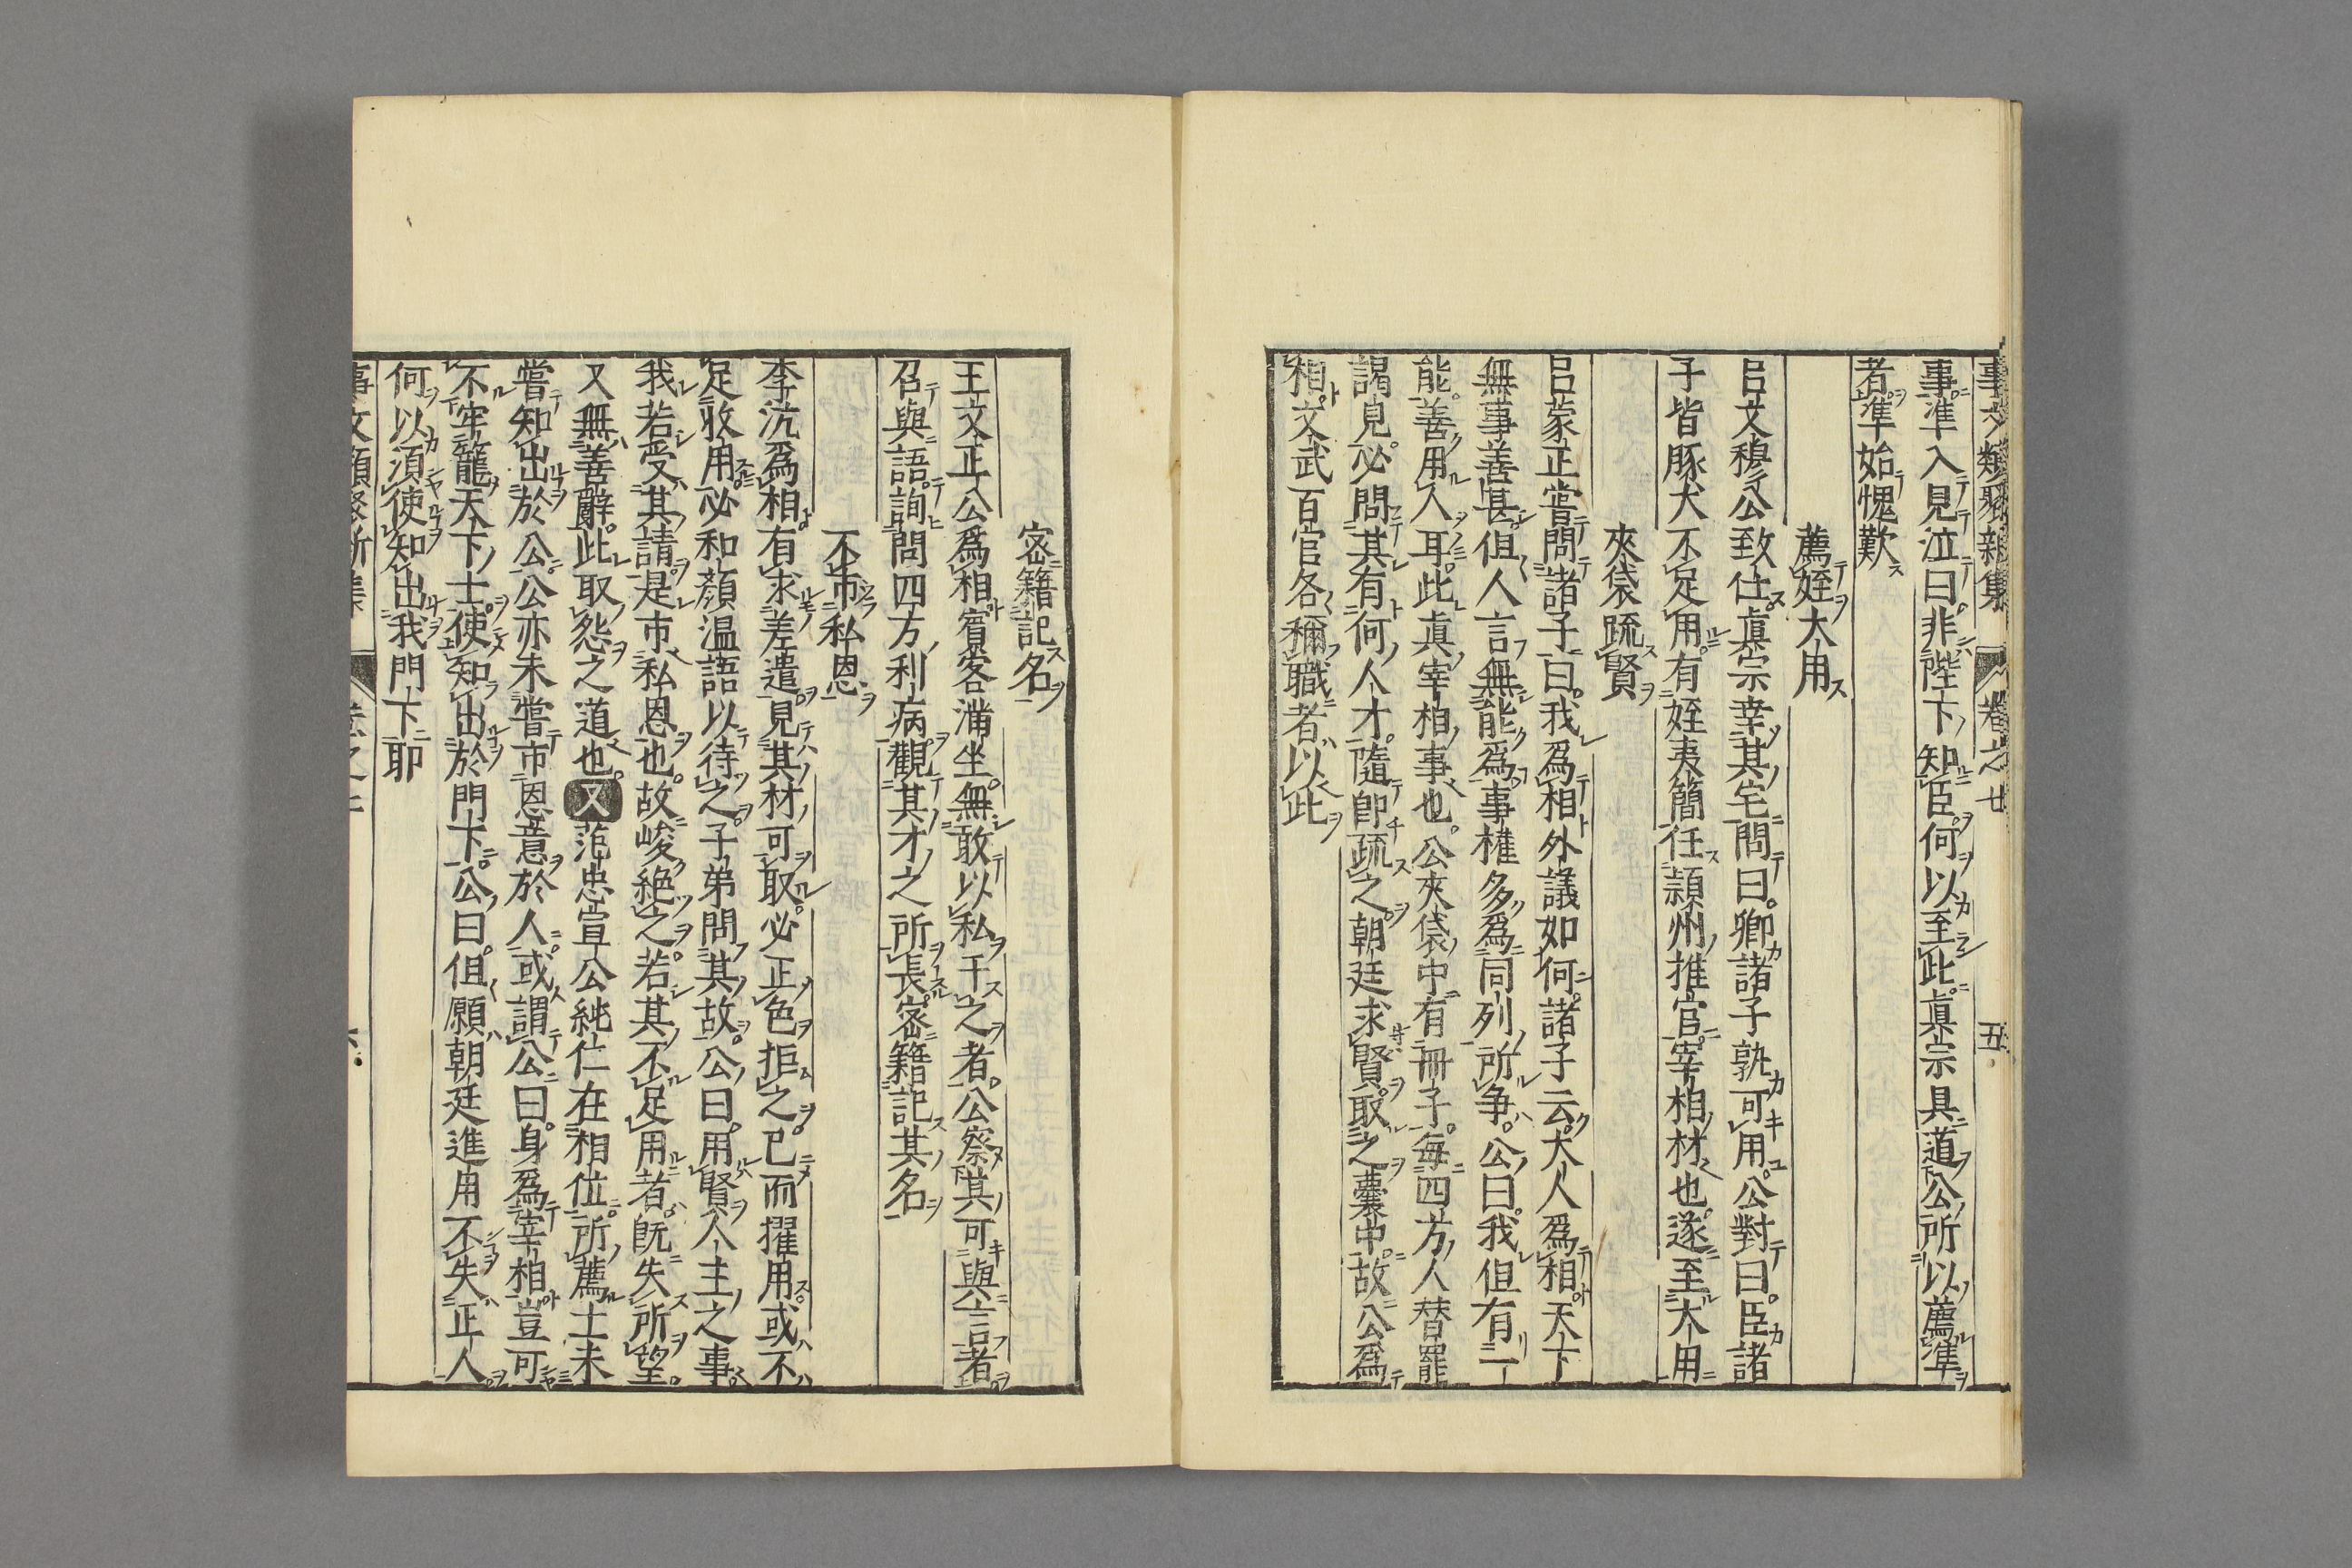 事文類聚新集 卷之廿 五
事準入見泣曰非陛下知臣何以至此真宗具道公所以薦準
者準始愧歎
薦姪大用
呂文穆公致仕真宗幸其宅問曰卿諸子孰可用公對曰臣諸
子皆豚犬不足用有姪夷簡任頴州推官宰相材也遂至大用
夾袋疏賢
呂蒙正嘗問諸子曰我為相外議如何諸子云大人為相天下
無事善甚但人言無能為事權多為同列所争公曰我但有一
能善用人耳此真宰相事也公夾袋中有冊子每四方人替罷
謁見必問其有何人才隨即疏之朝廷求賢取之囊中故公為
相文武百官各稱職者以此
密籍記名
王文正公為相賓客滿坐無敢以私干之者公察其可與言者
召與語詢問四方利病觀其才之所長密籍記其名
不市私恩
李沆為相有求差遣見其材可取必正色拒之已而擢用或不
足收用必和顏温語以待之子弟問其故公曰用賢人主之事
我若受其請是市私恩也故峻絶之若其不足用者既失所望
又無善辭此取怨之道也又范忠宣公純仁在相位所薦士未
嘗知出於公公亦未嘗市恩意於人或謂公曰身為宰相豈可
不牢籠天下士使知出於門下公曰但願朝廷進用不失正人
何以須使知出我門下耶